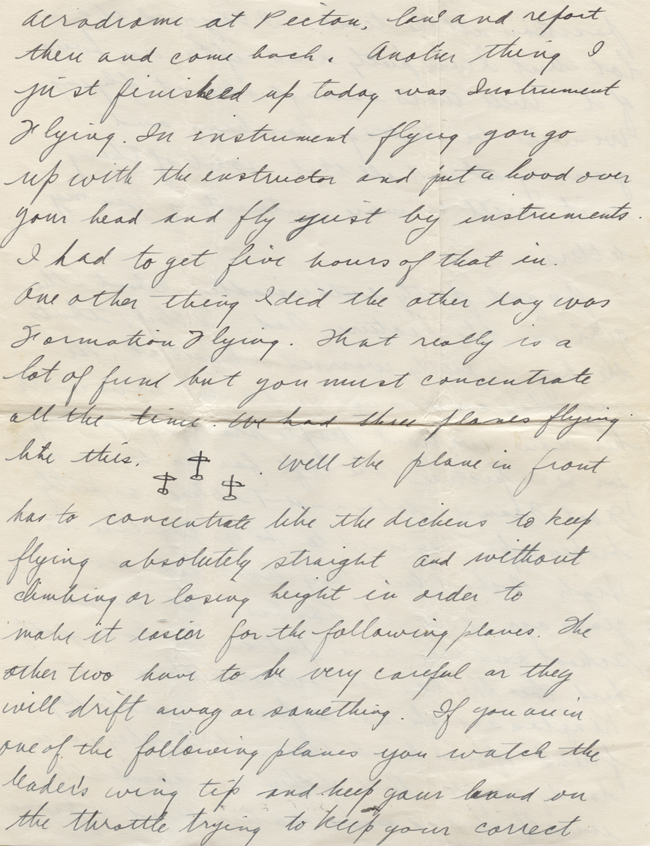 aerodrome at Picton, land and report
there and come back. Another thing I
just finished up today was Instrument
Flying. In instrument flying you go
up with the instructor and put a hood over
your head and fly just by instruments.
I had to get five hours of that in.
One other thing I did the other day was
Formation Flying. That really is a
lot of fun but you must concentrate
all the time. We had three planes flying
like this. . Well the plane in front
has to concentrate like the dickens to keep
flying absolutely straight and without
climbing or losing height in order to
make it easier for the following planes. The
other two have to be very careful or they
will drift away or something. If you are in
one of the following planes you watch the
leader's wing tip and keep your hand on
the throttle trying to keep your correct